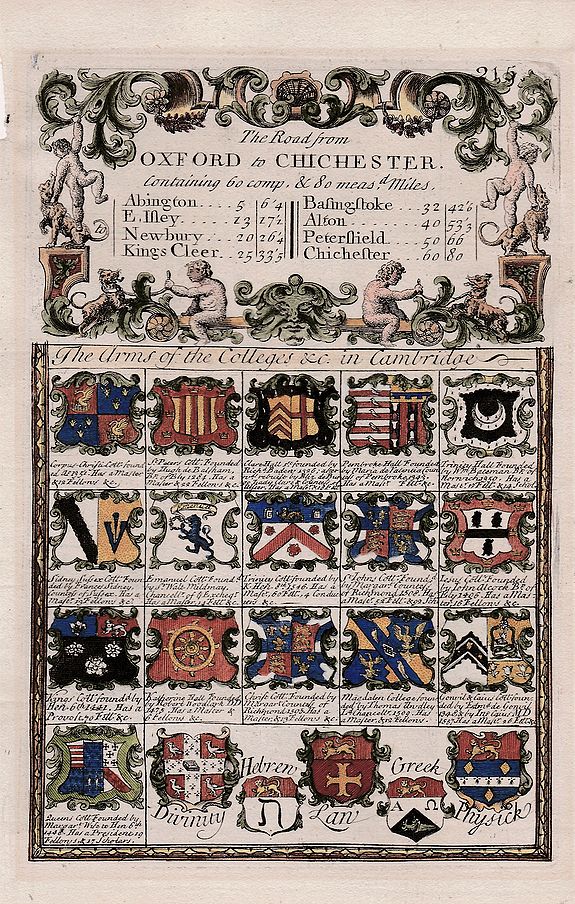 215
The Road from
OXFORD to CHICHESTER.
Containing 60 comp. & 80 meas.d Miles.
Abington.... 5 6'4
E. Isley .... 13 17'2
Newbury ... 20 26'4
Kings Cleer .. 25 33'5
Basingstoke .. 32 42'6
Alton ...... 40 53'3
Petersfield .. 50 66
Chichester ... 60 80
The Arms of the Colleges &c. in Cambridge
Corpus Christi Coll: found
ed. Has a Master
& 12 Fellons &c.
St Peters Coll: Founded
by Hugh de Balsham,
BP. of Ely 1284. Has a
Master & 22 Fellons &c.
Clare Hall 1st founded by
Rich.d Baden 1326. after
Pembroke Hall Founded
by Maria de
of Pembroke 1343.
Has a Mast.r Fell. &c.
Trinity Hall Founded
by Wm. Bateman BP. of
Norwich. Has a
Mast.r 12 Fell.s & 14 Schol.
Sidney Sussex Coll: Foun
ded by Frances Sidney
Countess of Sussex. Has a
Mast.r Fellons &c.
Emanuel Coll: Found.d
by Sr. Walt. Mildmay
Chancell.r of ye Excheqr.
Has a Master, Fell. &c.
Trinity Coll: founded by
K. Hen. 8th 1546. Has a
Mast.r 60 Fell. 4 Conduc
ts &c.
St Johns Coll: Found.d
by Margaret Countess
of Richmond 1508. Has
a Mast.r Fell.
Jesus Coll: Founded
by John Alcock BP.
Ely. Has a Mas
ter, 16 Fellons &c.
Kings Coll: found.d by
Hen. 6th 1441. Has a
Provost, 70 Fell. &c.
Katherine Hall Founded
by Robert Woodlark D.D.
1475. Has a Master &
6 Fellons &c.
Christ Coll: Founded by
Margar.t Countess of
Richmond 1505. Has a
Master, & 13 Fellons &c.
Magdalen College foun
ded by Thomas Audley
Ld. Chancellr. 1519. Has
a Master, & 13 Fellons.
Gonvil & Caius Coll: foun
ded by Edm.d de Gonvil
1348 & by Jn. Caius M.D.
1557. Has a Mast.r 26 Fell. &c.
Queens Coll: Founded by
Margar.t Wife to Hen. 6th
1448. Has a President 19
Fellons & 17 Scholars.
Divinity
Hebrew
Law
Greek
Α Ω
Physick